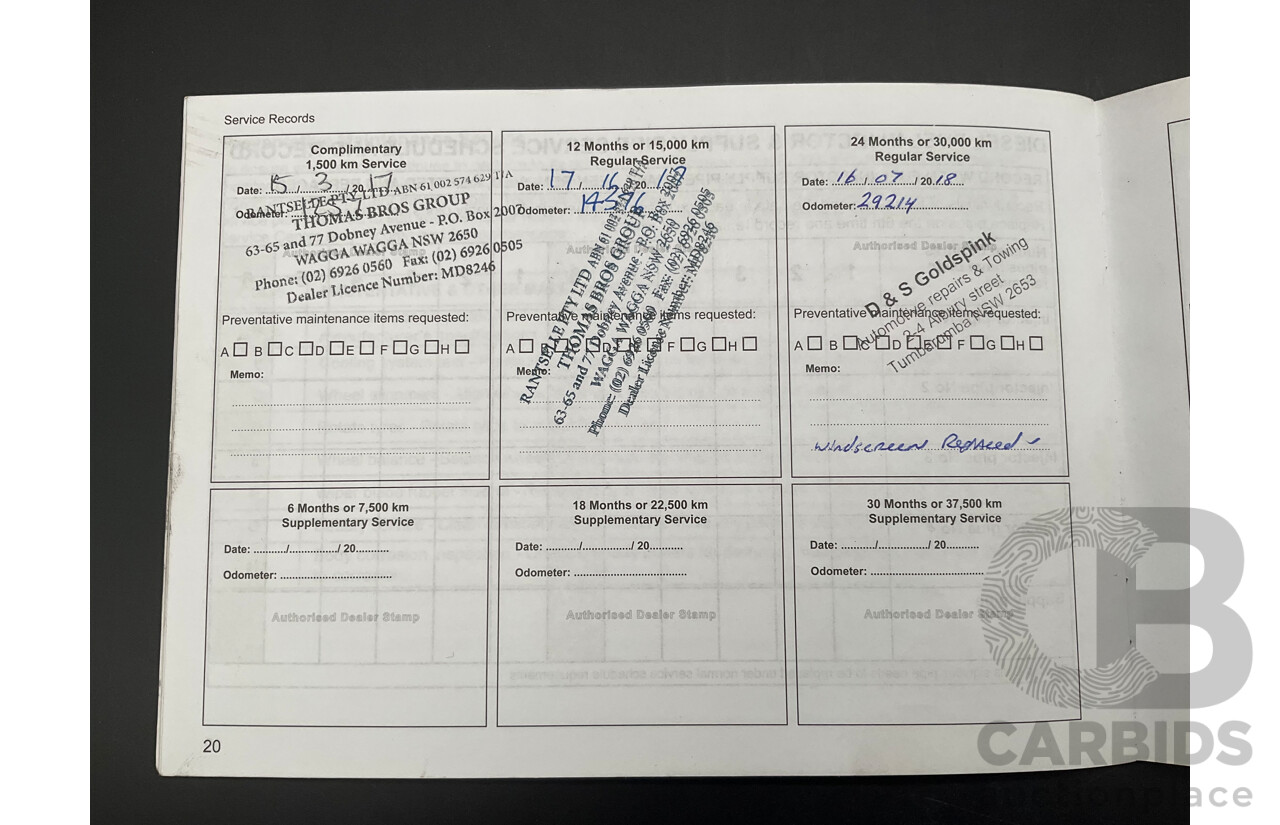 Service Records
Complimentary
1,500 km Service
Date: 15 / 3 / 2017
Odometer:
RANTSELLE PTY LTD ABN 61 002 574 629 T/A
THOMAS BROS GROUP
63-65 and 77 Dobney Avenue - P.O. Box 2007
WAGGA WAGGA NSW 2650
Phone: (02) 6926 0560 Fax: (02) 6926 0505
Dealer Licence Number: MD8246
Preventative maintenance items requested:
A B C D E F G H
Memo:
12 Months or 15,000 km
Regular Service
Date: 17 / 16 / 20
Odometer:
RANTSELLE PTY LTD ABN 61 002
THOMAS BROS GROUP
63-65 and 77 Dobney Avenue - P.O. Box 2007
WAGGA WAGGA NSW 2650
Phone: (02) 6926 0560 Fax: (02) 6926 0505
Dealer Licence Number: MD8246
Preventative maintenance items requested:
A D F G H
Memo:
24 Months or 30,000 km
Regular Service
Date: 16 / 07 / 2018
Odometer: 29214
Authorised Dealer Stamp
D & S Goldspink
Automotive repairs & Towing
2-4 Albury street
Tumbarumba NSW 2653
Preventative maintenance items requested:
A B C D E F G H
Memo:
Windscreen Replaced
6 Months or 7,500 km
Supplementary Service
Date: ........../.............../ 20...........
Odometer: ......................................
Authorised Dealer Stamp
18 Months or 22,500 km
Supplementary Service
Date: ........../.............../ 20...........
Odometer: ......................................
Authorised Dealer Stamp
30 Months or 37,500 km
Supplementary Service
Date: ........../.............../ 20...........
Odometer: ......................................
Authorised Dealer Stamp
20
CARBIDS
auctionplace